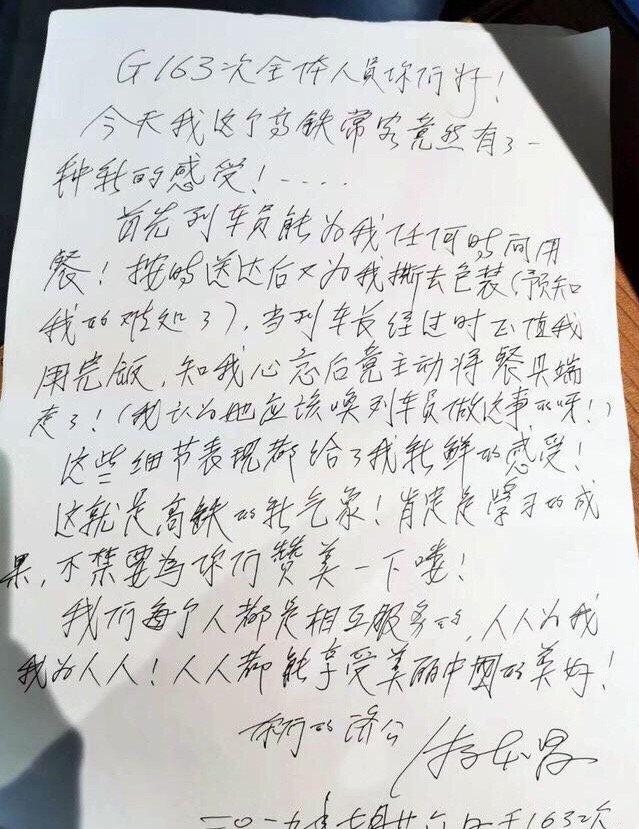 G163次全体人员你们好!
今天我这个高铁常客竟然有了一
种新的感受!....
首先列车员能为我任何时间用
餐!按时送达后又为我撕去包装(预知
我的难处了),当列车长经过时正值我
用完饭,知我心意后竟主动将餐具端
走了!(我认为她应该唤列车员做这事的呀!)
这些细节表现都给了我新鲜的感受!
这就是高铁的新气象!肯定是学习的成
果,不禁要為你们赞美一下喽!
我们每个人都是相互服务的,人人为我
我为人人!人人都能享受美丽中國的美好!
你们的济公
游本昌
二〇一九年七月廿六日于163次